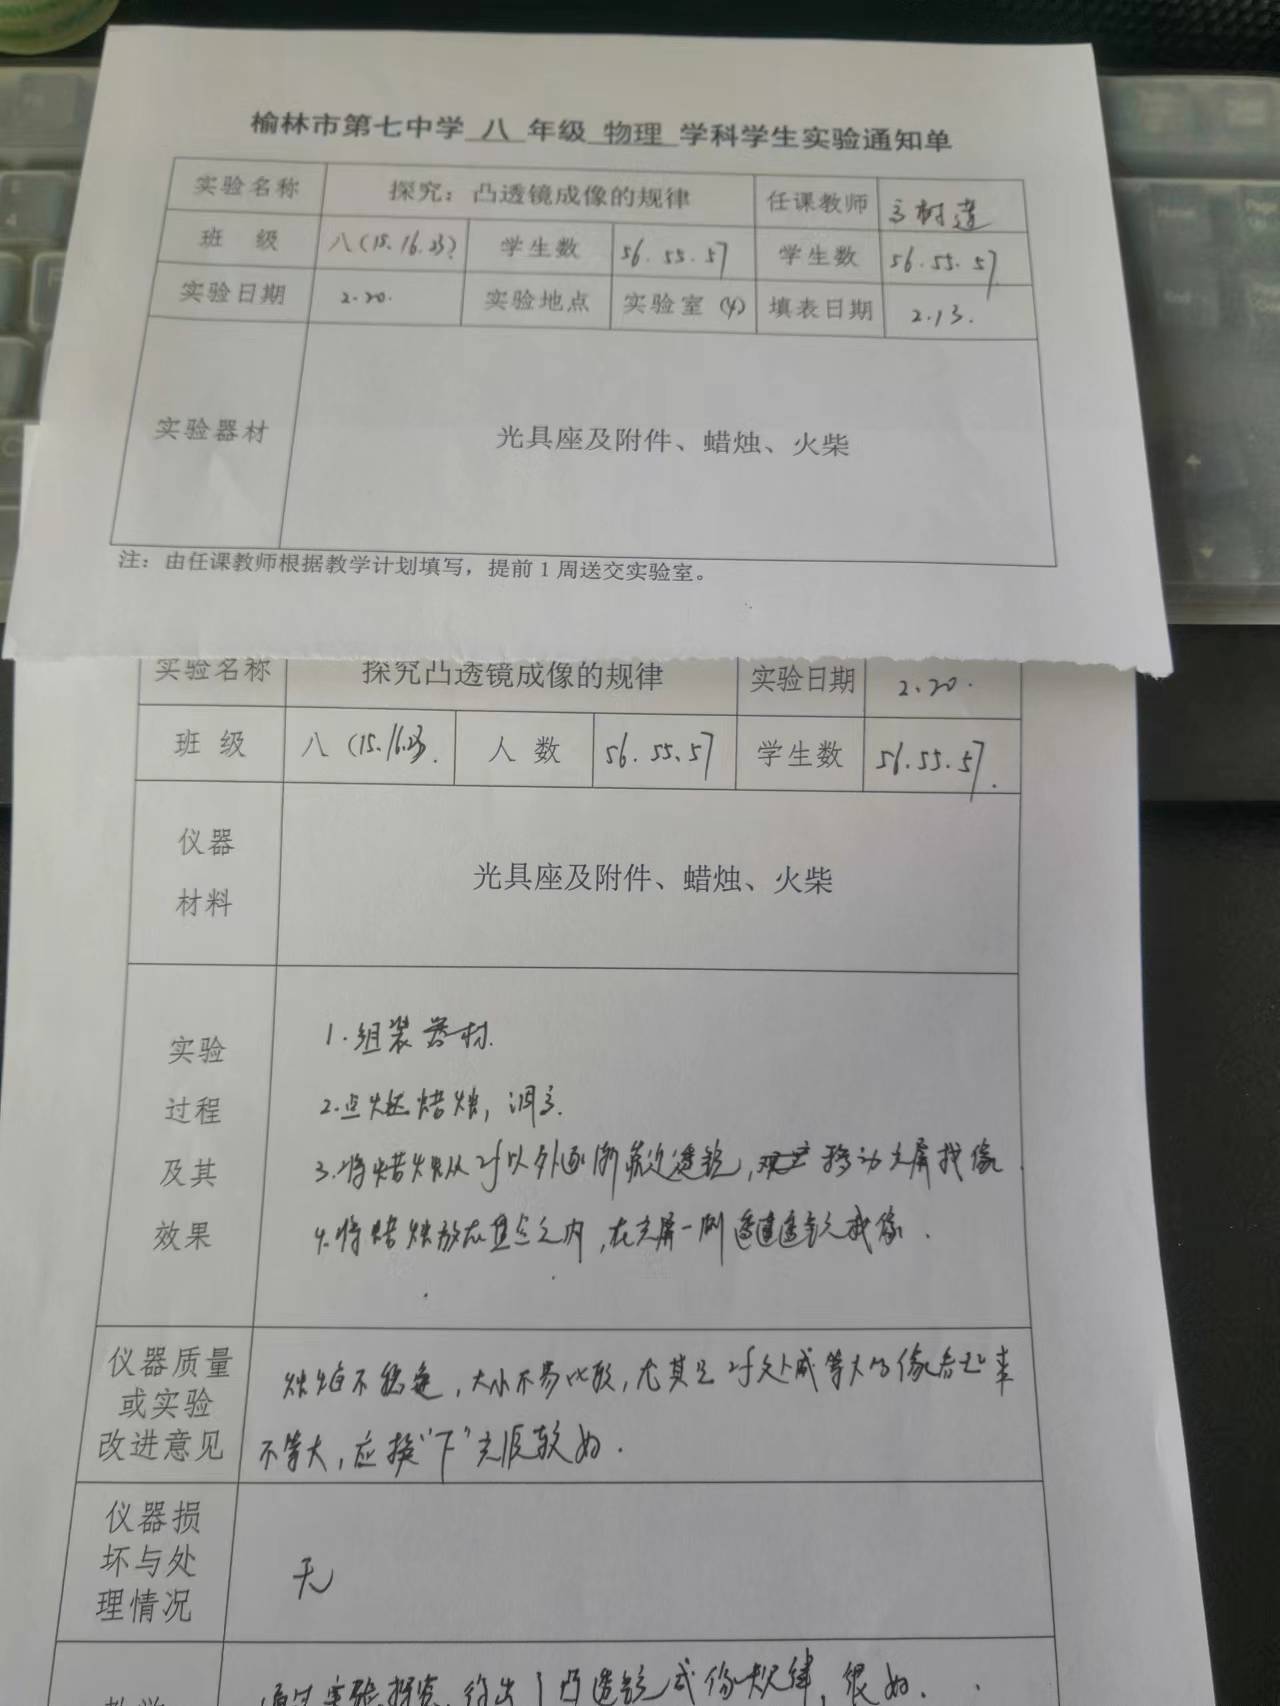 榆林市第七中学 八 年级 物理 学科学生实验通知单
实验名称 探究：凸透镜成像的规律 任课教师 树道
班 级 八（15.16.23） 学生数 56.55.57 学生数 56.55.57
实验日期 2.20. 实验地点 实验室（4） 填表日期 2.13.
实验器材 光具座及附件、蜡烛、火柴
注：由任课教师根据教学计划填写，提前1周送交实验室。
实验名称 探究凸透镜成像的规律 实验日期 2.20.
班 级 八（15.16.23. 人 数 56.55.57 学生数 56.55.57.
仪器
材料
光具座及附件、蜡烛、火柴
实验
过程
及其
效果
1.组装器材.
2.点燃蜡烛，调高.
3.将蜡烛从2f以外逐渐靠近透镜，移动光屏找像.
4.将蜡烛放在焦点之内，在光屏一侧透过透镜找像.
仪器质量
或实验
改进意见
烛焰不稳定，大小不易比较，尤其是2f处成等大的像看起来
不等大，应换“F”光源较好.
仪器损
坏与处
理情况
无
通过实验探究，得出了凸透镜成像规律，很好.